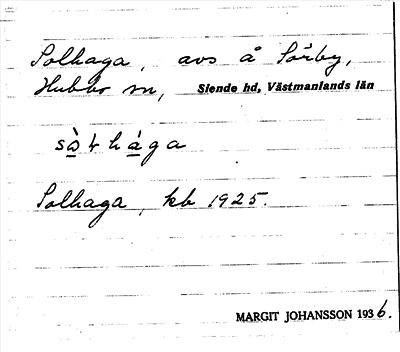 Solhaga, avs å Sörby,
Hubbo sn, Siende hd, Västmanlands län
Solhaga, kb 1925.
MARGIT JOHANSSON 1936.